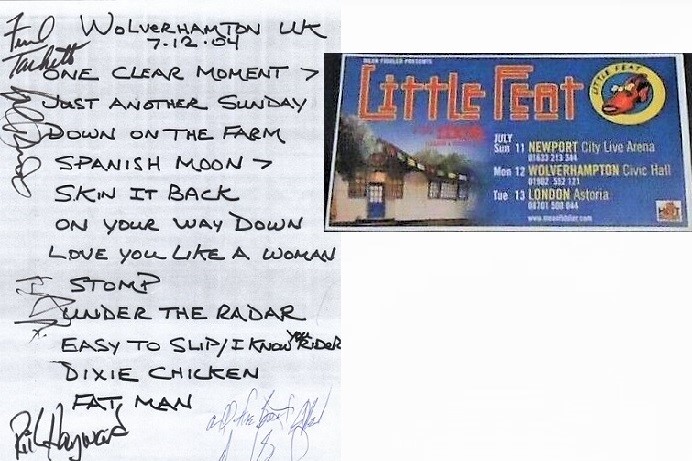 WOLVERHAMTON UK
7.12.04
Fred
Tackett
ONE CLEAR MOMENT >
JUST ANOTHER SUNDAY
DOWN ON THE FARM
SPANISH MOON >
SKIN IT BACK
ON YOUR WAY DOWN
LOVE YOU LIKE A WOMAN
STOMP
UNDER THE RADAR
EASY TO SLIP/I KNOW YOU RIDER
DIXIE CHICKEN
FAT MAN
Hayward
MEAN FIDDLER PRESENTS
Little Feat
LITTLE FEAT
JULY
Sun 11 NEWPORT City Live Arena
01633 213 344
Mon 12 WOLVERHAMPTON Civic Hall
01902 552 121
Tue 13 LONDON Astoria
08701 500 044
www.meanfiddler.com